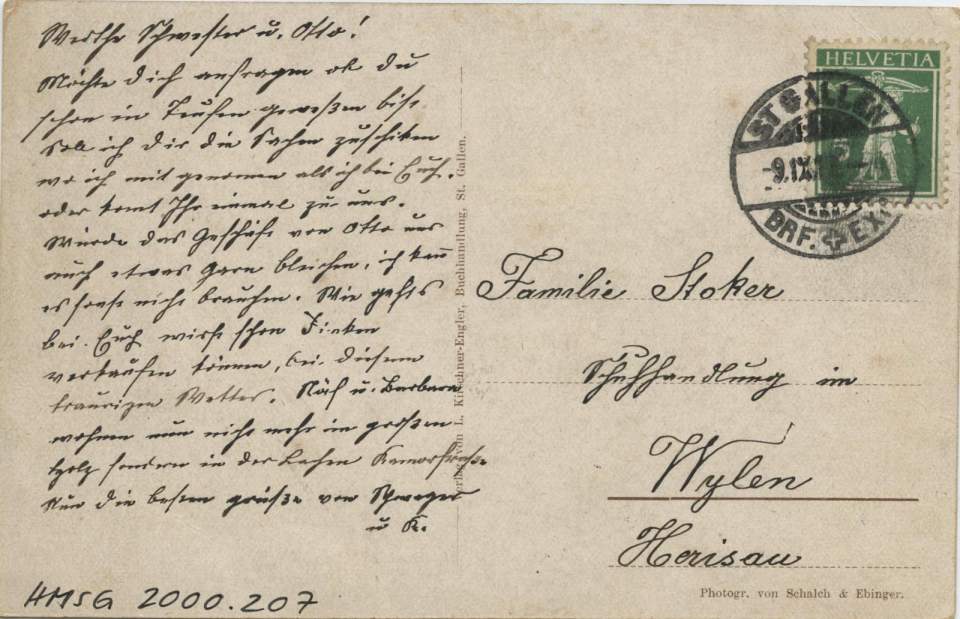 Werthe Schwester u. Otto!
Möchte dich anfragen ob du
schon in Teufen gewesen bist
Soll ich dir die Sachen zuschiken
wo ich mit genomen als ich bei Euch.
oder komt Ihr einmal zu uns.
Würde das Geschäft von Otto uns
auch etwas Garn bleichen, ich kann
es sonst nicht brauchen. Wie gehts
bei Euch wirst schon Finken
verkaufen können, bei diesem
traurigen Wetter. Näf u. Barbara
wohnen nun nicht mehr im großen
Holz sondern in der Lachen Kamorstraße
Nun die besten grüße von Schwager
u K.
HMSG 2000.207
Verlag von L. Kirschner-Engler, Buchhandlung, St. Gallen.
HELVETIA
5
ST GALLEN
-9.IX.
BRF. EXP.
Familie Stoker
Schuhhandlung im
Wylen
Herisau
Photogr. von Schalch & Ebinger.